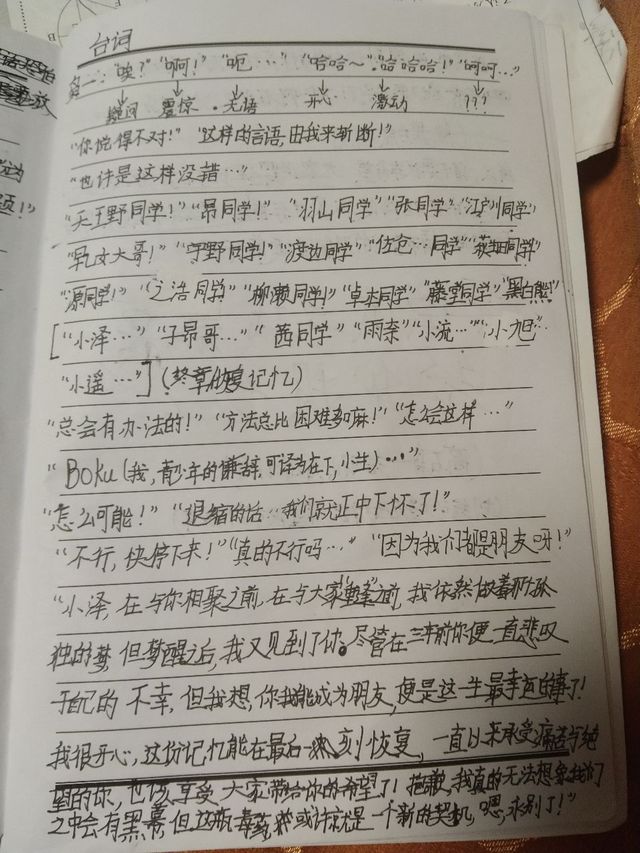 台词
"唉?" "啊!" "呃…" "哈哈~" "哈哈哈!" "呵呵…"
疑问 震惊 无语 开心 激动 ???
"你说得不对!" "这样的言语,由我来斩断!"
"也许是这样没错…"
"天王野同学!" "昂同学!" "羽山同学" "张同学" "江户川同学"
"乳文大哥!" "守野同学!" "渡边同学" "佐仓…同学" "萩田同学"
"源同学!" "之浩同学" "柳濑同学!" "卓本同学" "藤堂同学" "黑白熊"
["小泽…" "子昂哥…" "茜同学" "雨奈" "小流…" "小旭"
"小遥…"] (终章恢复记忆)
"总会有办法的!" "方法总比困难多嘛!" "怎么会这样…"
"Boku(我,青少年的谦辞,可译为在下,小生)…"
"怎么可能!" "退缩的话…我们就正中下怀了!"
"不行,快停下来!" "真的不行吗…" "因为我们都是朋友呀!"
"小泽,在与你相聚之前,在与大家 之前,我依然做着那孤
独的梦,但梦醒之后,我又见到了你。尽管在三年前你便一直悲叹
于自己的不幸,但我想,你我能成为朋友,便是这一生最幸运的事了!
我很开心,这份记忆能在最后 刻恢复,一直以来承受痛苦与绝
望的你,也该享受大家带给你的希望了!抱歉,我真的无法想象我们
之中会有黑幕,但这瓶毒药 或许就是一个新的契机,嗯,永别了!"